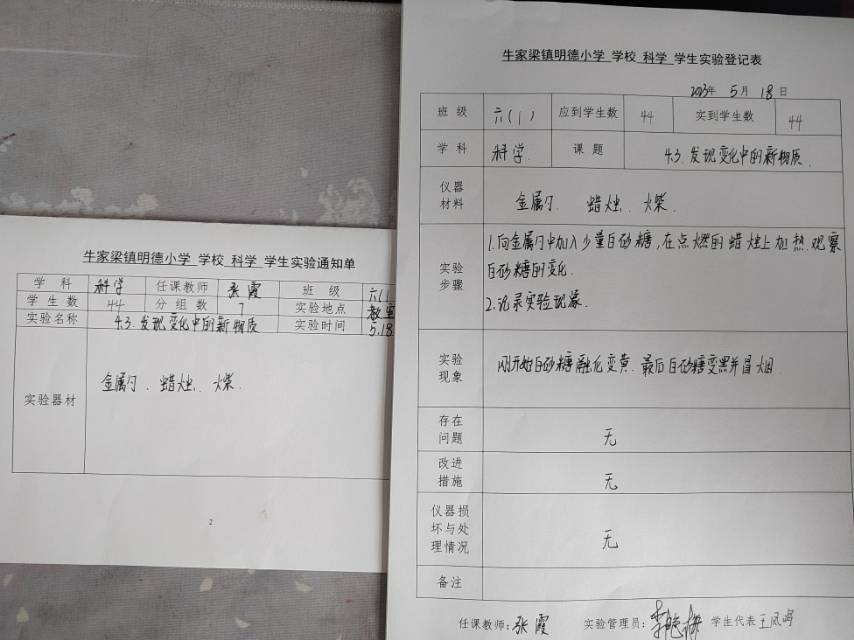 牛家梁镇明德小学 学校 科学 学生实验通知单
学 科 科学 任课教师 张霞 班 级 六(1
学 生 数 44 分 组 数 7 实验地点 教室
实验名称 4.3.发现变化中的新物质 实验时间 5.18
实验器材 金属勺、蜡烛、火柴.
2
牛家梁镇明德小学 学校 科学 学生实验登记表
2023年 5月 18日
班 级 六(1) 应到学生数 44 实到学生数 44
学 科 科学. 课 题 4.3.发现变化中的新物质.
仪器
材料
金属勺、蜡烛、火柴.
实验
步骤
1.向金属勺中加入少量白砂糖,在点燃的蜡烛上加热.观察
白砂糖的变化.
2.记录实验现象.
实验
现象
刚开始白砂糖融化变黄.最后白砂糖变黑并冒烟.
存在
问题
无
改进
措施
无
仪器损
坏与处
理情况
无
备注
任课教师:张霞 实验管理员: 学生代表